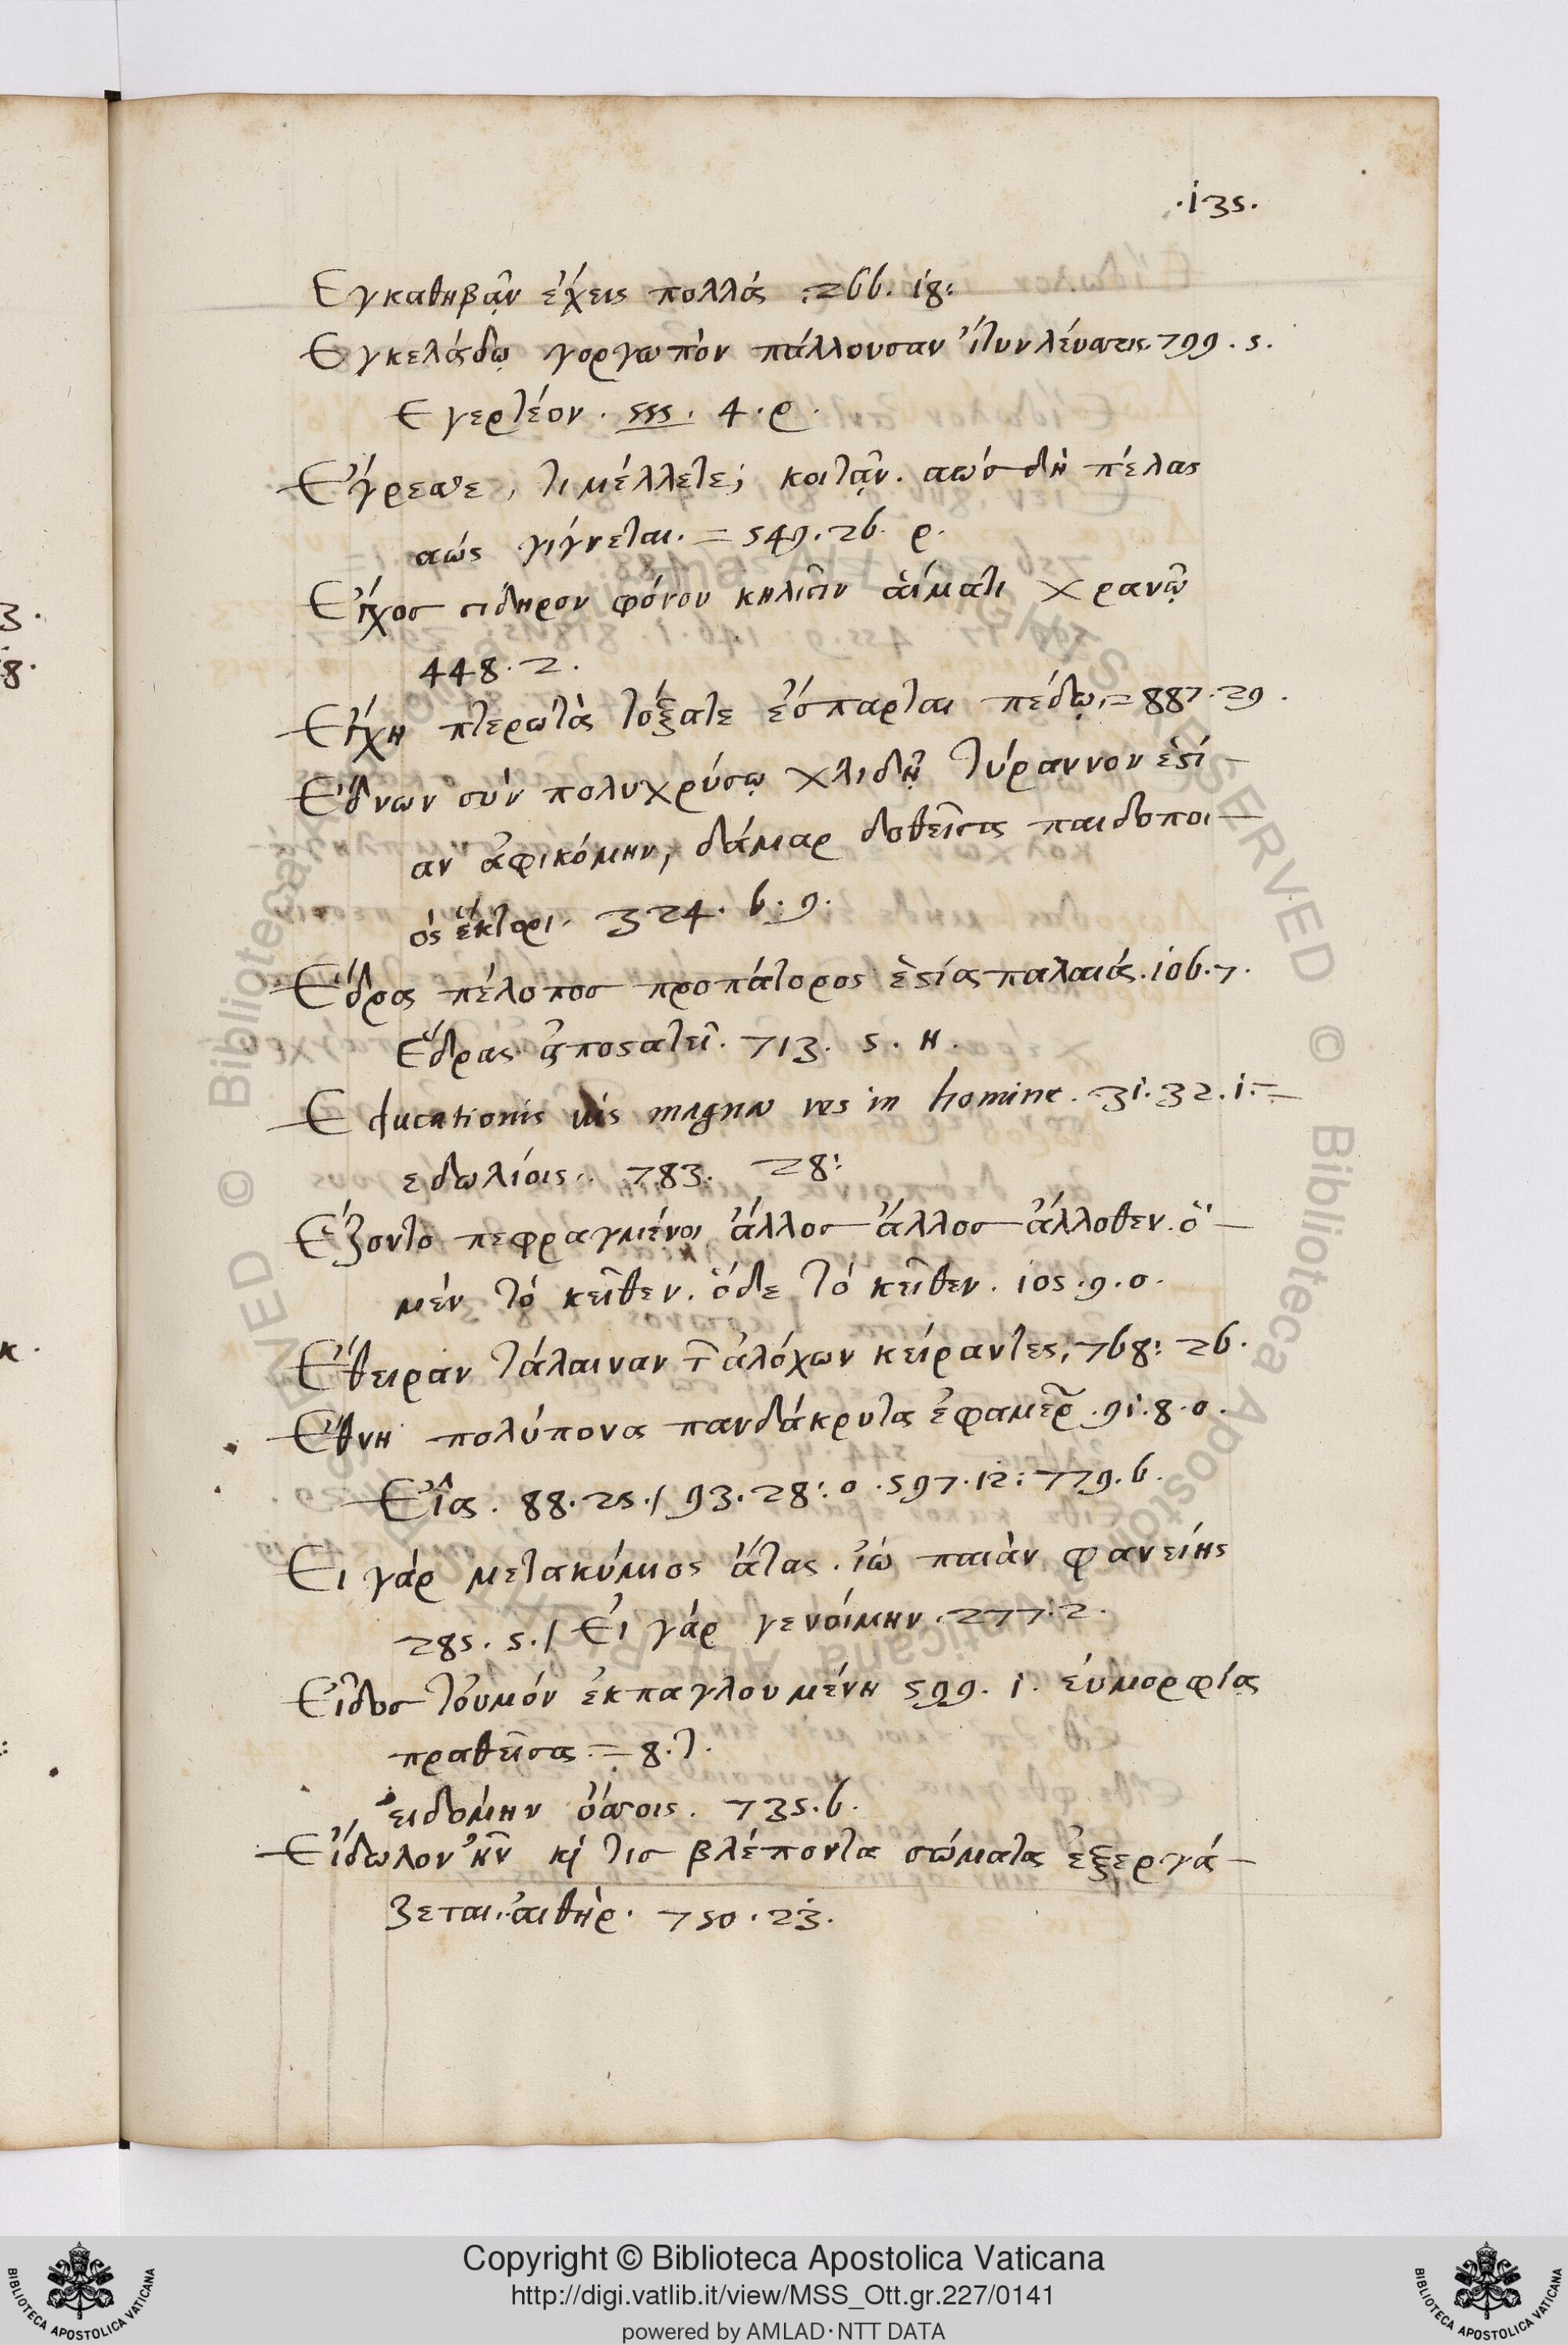 .135.
Εγκαθηβᾷν ἐχεις πολλά .266. 18:
Εγκελάδῳ γοργωπὸν πάλλουσαν ἴτυν λέυσσεις. 799. 5.
Εγερτέον. 555. 4. ρ.
Έγρεσθε, τι μέλλετε; κοιτᾷν. αὼσ δὴ πέλας
αώς γιγνεται. = 549. 26. ρ.
Εγχοσ σιδηρον φόνου κηλισῖν ἁίματι χρανῶ
448. 2.
Εγχη πτερωτὰ τόξατε ἐσπαρται πέδῳ. = 887. 29.
Εδνων σὺν πολυχρύσῳ χλιδῇ τύραννον ἑςί-
αν ἀφικόμην, δάμαρ δοθεῖσα παιδοποι-
ός ἑκτορι. 324. 6. 9.
Έδρα πέλοποσ προπάτορος ἑςίας παλαιάς. 106. 7.
Έδρας ἀποςατεῖ. 713. 5. Η.
Educationis uis magna res in homine. 31. 32. 1. =
εδωλίοις. 783. 28:
Εζοντο πεφραγμένοι ἄλλοσ ἄλλοσ ἄλλοθεν. ὁ-
μὲν τὸ κεῖθεν. ὁδε τὸ κεῖθεν. 105. 9. ο.
Έθειραν τάλαιναν τ̃ ἀλόχων κείραντες, 768: 26.
Έθνη πολύπονα πανδάκρυτα ἐφαμερ̃. 91. 8. ο.
Εἷα. 88. 25. / 93. 28: ο. 597. 12: 779. 6.
Ει γάρ μετακύμιος ἄτας. ἰὼ παιὰν φανείης
285. 5. / Ει γάρ γενοίμην. 277. 2.
Εῖδοσ τοὐμόν ἐκπαγλουμένη 599. 1. ἐυμορφίᾳ
πραθεῖσα. = 8. τ.
ειδομην ὄσσοις. 735. 6.
Είδωλον ἦν κ̀ τισ βλέποντα σώματα ἐξεργά-
ζεται. ἀιθὴρ. 750. 23.
3.
8.
κ.
:
Copyright © Biblioteca Apostolica Vaticana
http://digi.vatlib.it/view/MSS_Ott.gr.227/0141
powered by AMLAD·NTT DATA
BIBLIOTECA APOSTOLICA VATICANA
BIBLIOTECA APOSTOLICA VATICANA